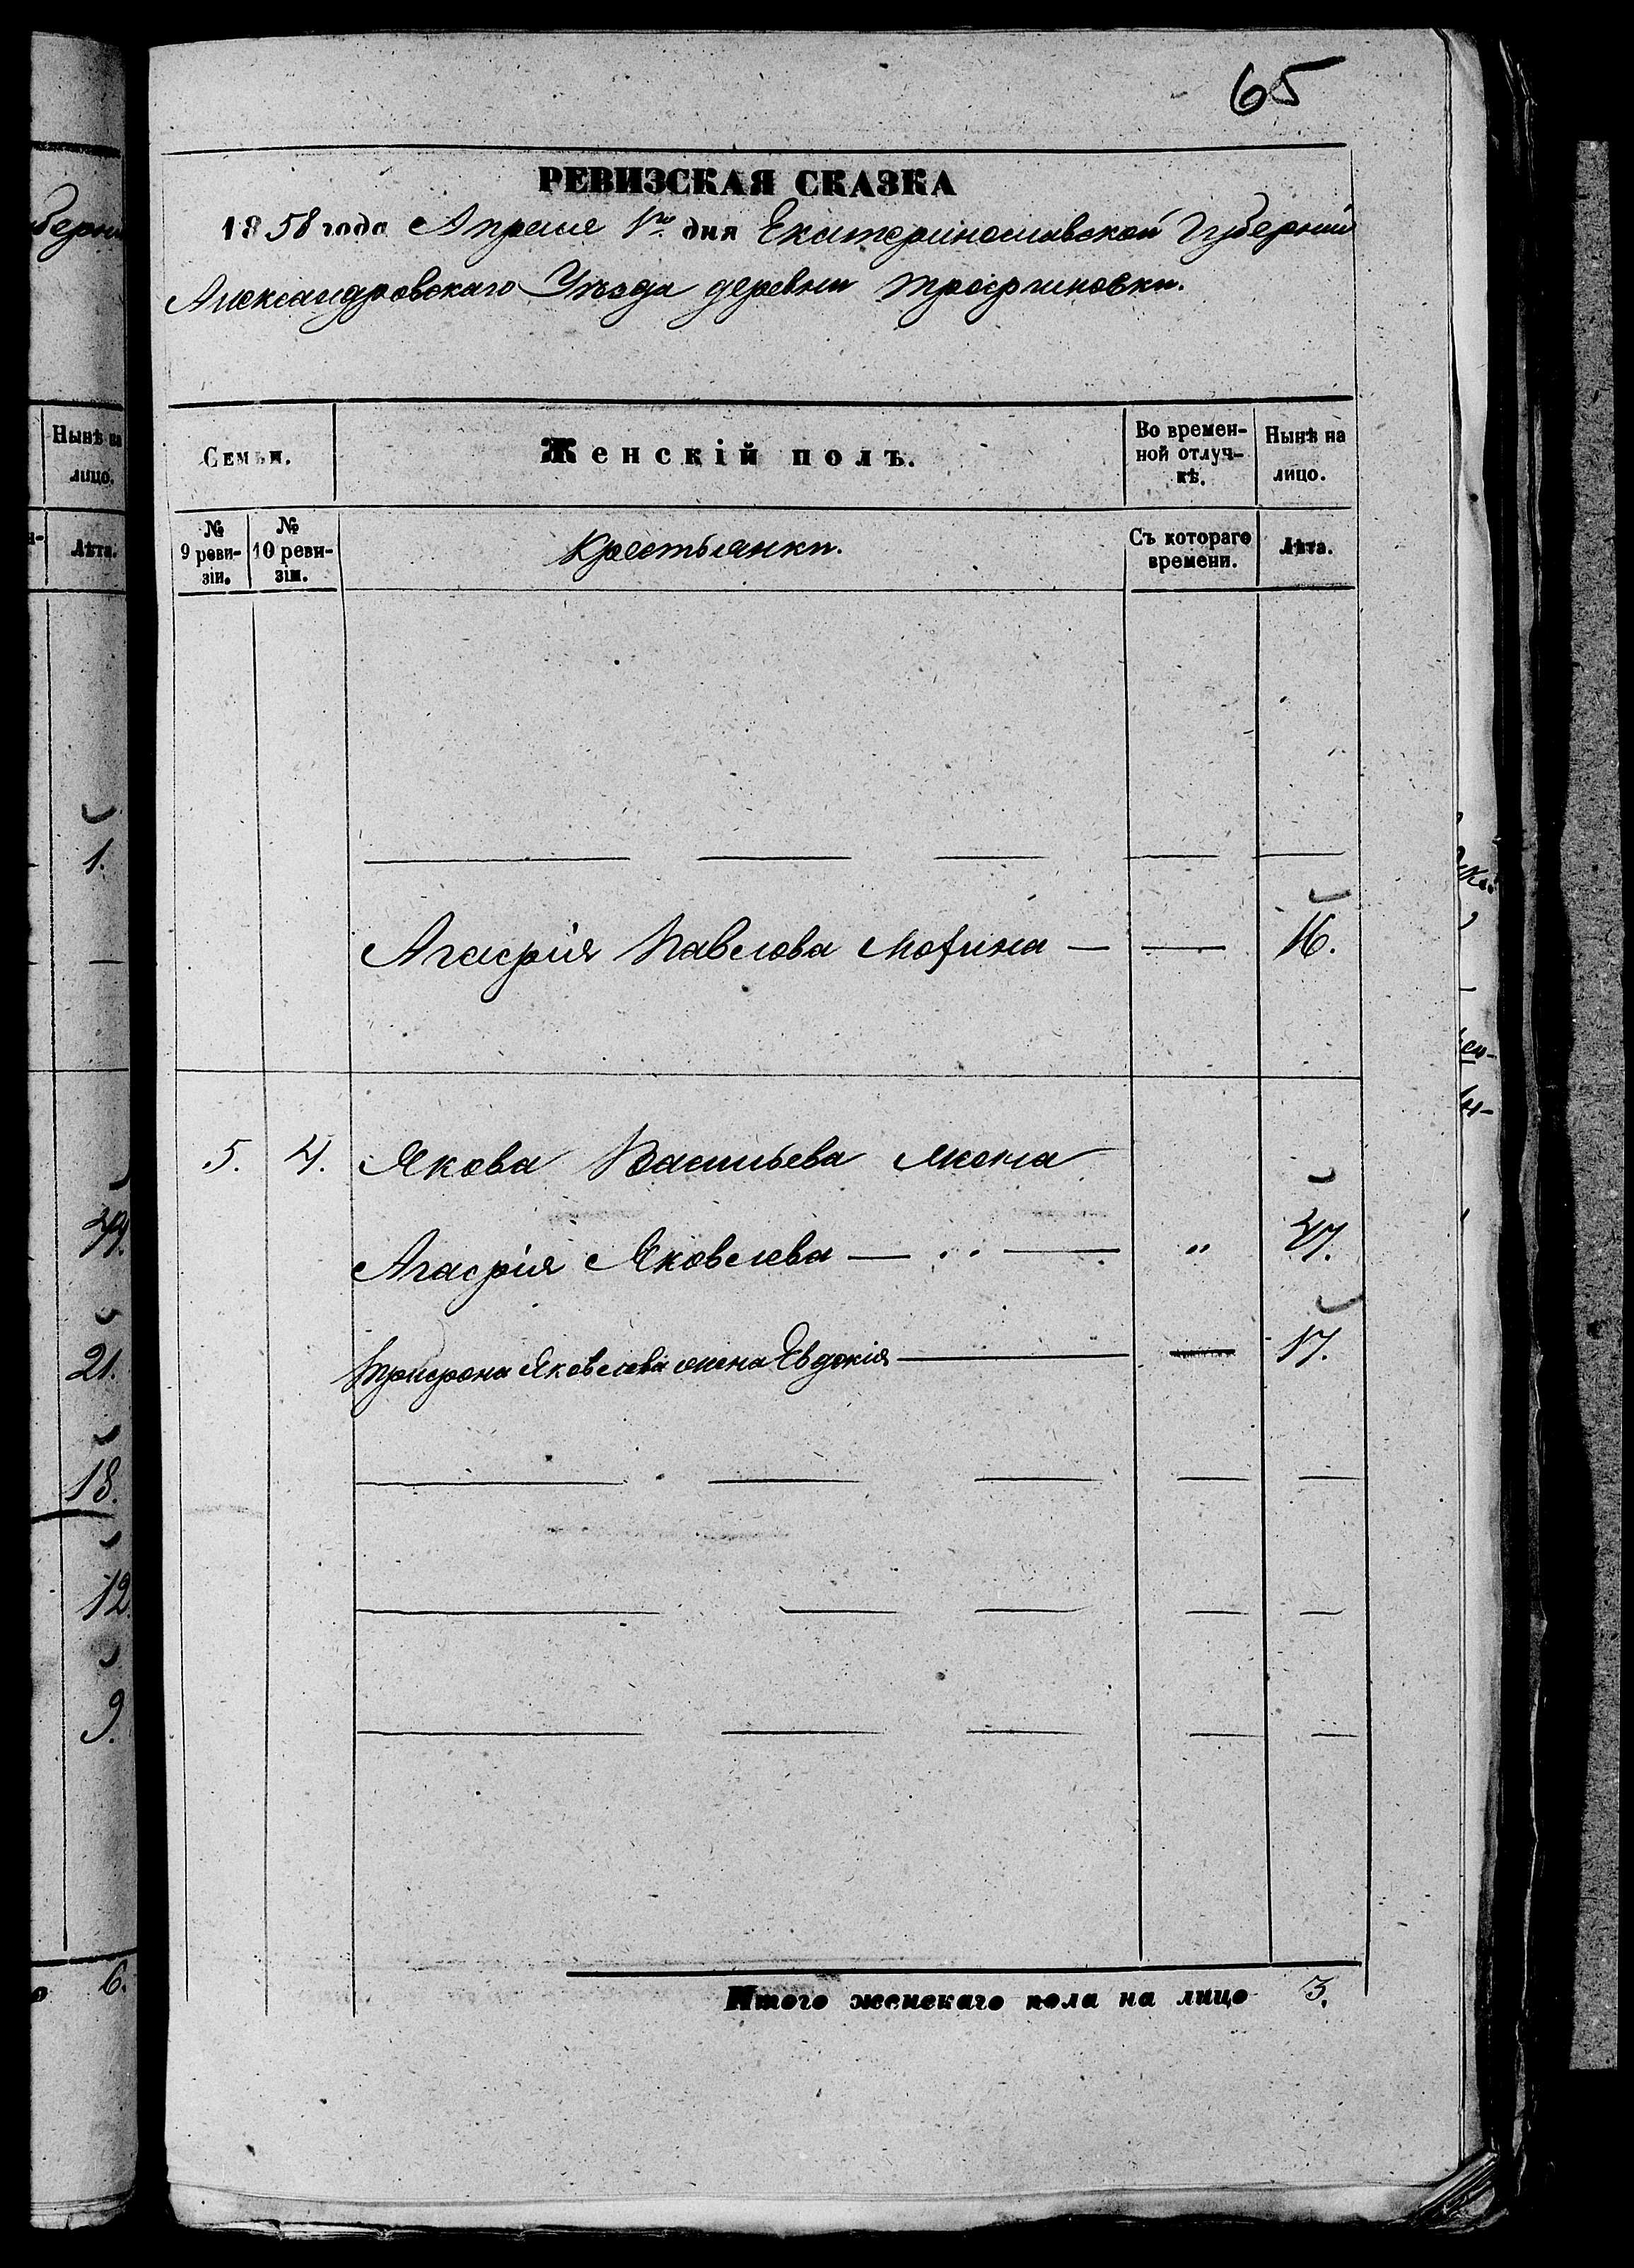 65
РЕВИЗСКАЯ СКАЗКА
1858 года Апреля 1го дня Екатеринославской Губернии
Александровскаго Уѣзда деревни Трофимовки.
Семьи.
Женскій полъ.
Во времен-
ной отлуч-
кѣ.
Нынѣ на
лицо.
№
9 реви-
зіи.
№
10 реви-
зіи.
Крестьянки.
Съ котораго
времени.
Лѣта.
Агафія Павлова 16.
5. 4. Якова Васильева жена
Агафія Яковлева — „ 47.
Трифона Яковлева жена Евдокія — 17.
Итого женскаго пола на лицо 3.
Нынѣ на
лицо.
Лѣта.
1.
44.
21.
18.
12
9.
6.